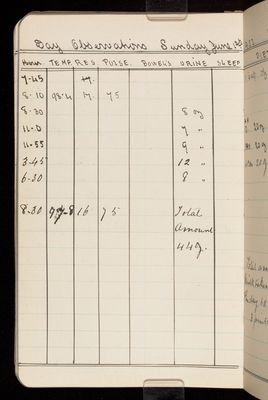 Day Observations Sunday June
Hours. TEMP. RES PULSE. BOWELS URINE SLEEP
7-45 17.
8-10 98.4 17. 75
8-30 8 oz
11-0 7 "
11-55 9 "
3-45 12 "
6-30 8 "
8.30 97-8 16 75 Total
Amount
44 oz.